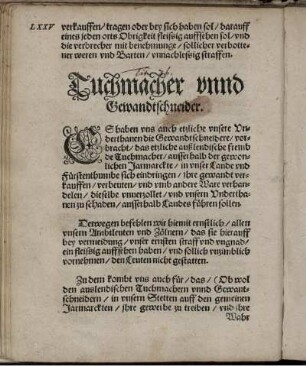 LXXV
verkauffen/ tragen oder bey sich haben sol/ darauff
eines jeden orts Obrigkeit fleißig auffsehen sol/ vnd
die verbrecher mit benehmunge/ sollicher verbotte-
ner weren vnd Barten/ vnnachleßig straffen.
Tuchmacher vnnd
Gewandtschneider.
ES haben vns auch etzliche vnsere Vn-
derthanen die Gewandtschneider/ vor-
bracht/ das etzliche außlendische fremb-
de Tuchmacher/ ausserhalb der gewon-
lichen Jarmarckte/ in vnser Lande vnd
Fürstenthumbe sich eindringen/ ihre gewandt ver-
kauffen/ verbeuten/ vnd vmb andere Ware verhan-
delen/ dieselbe vnuerzollet/ vnd vnsern Vndertha-
nen zu schaden/ ausserhalb Landes führen sollen.
Derwegen befehlen wir hiemit ernstlich/ allen
vnsern Ambtleuten vnd Zölnern/ das sie hierauff
bey vermeidung/ vnser ernsten straff vnd vngnad/
ein fleißig auffsehen haben/ vnd sollich vnzimblich
vornehmen/ den Leuten nicht gestatten.
Zu dem kombt vns auch für/ das/ (Ob wol
den auslendischen Tuchmachern vnnd Gewant-
schneidern/ in vnsern Stetten auff den gemeinen
Jarmarckten/ ihre gewerbe zu treiben/ vnd ihre
Wahr